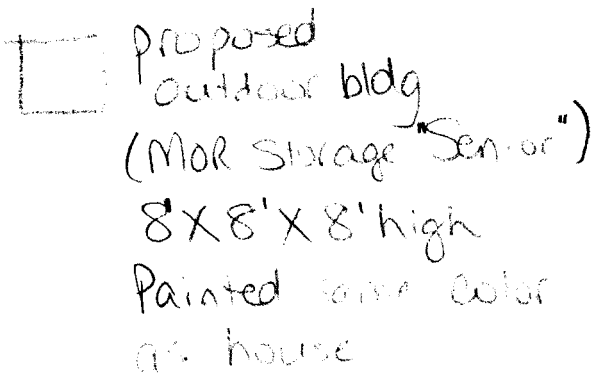 proposed
outdoor bldg
(MOR Storage "Senior")
8'X8'X8'high
Painted same color
as house